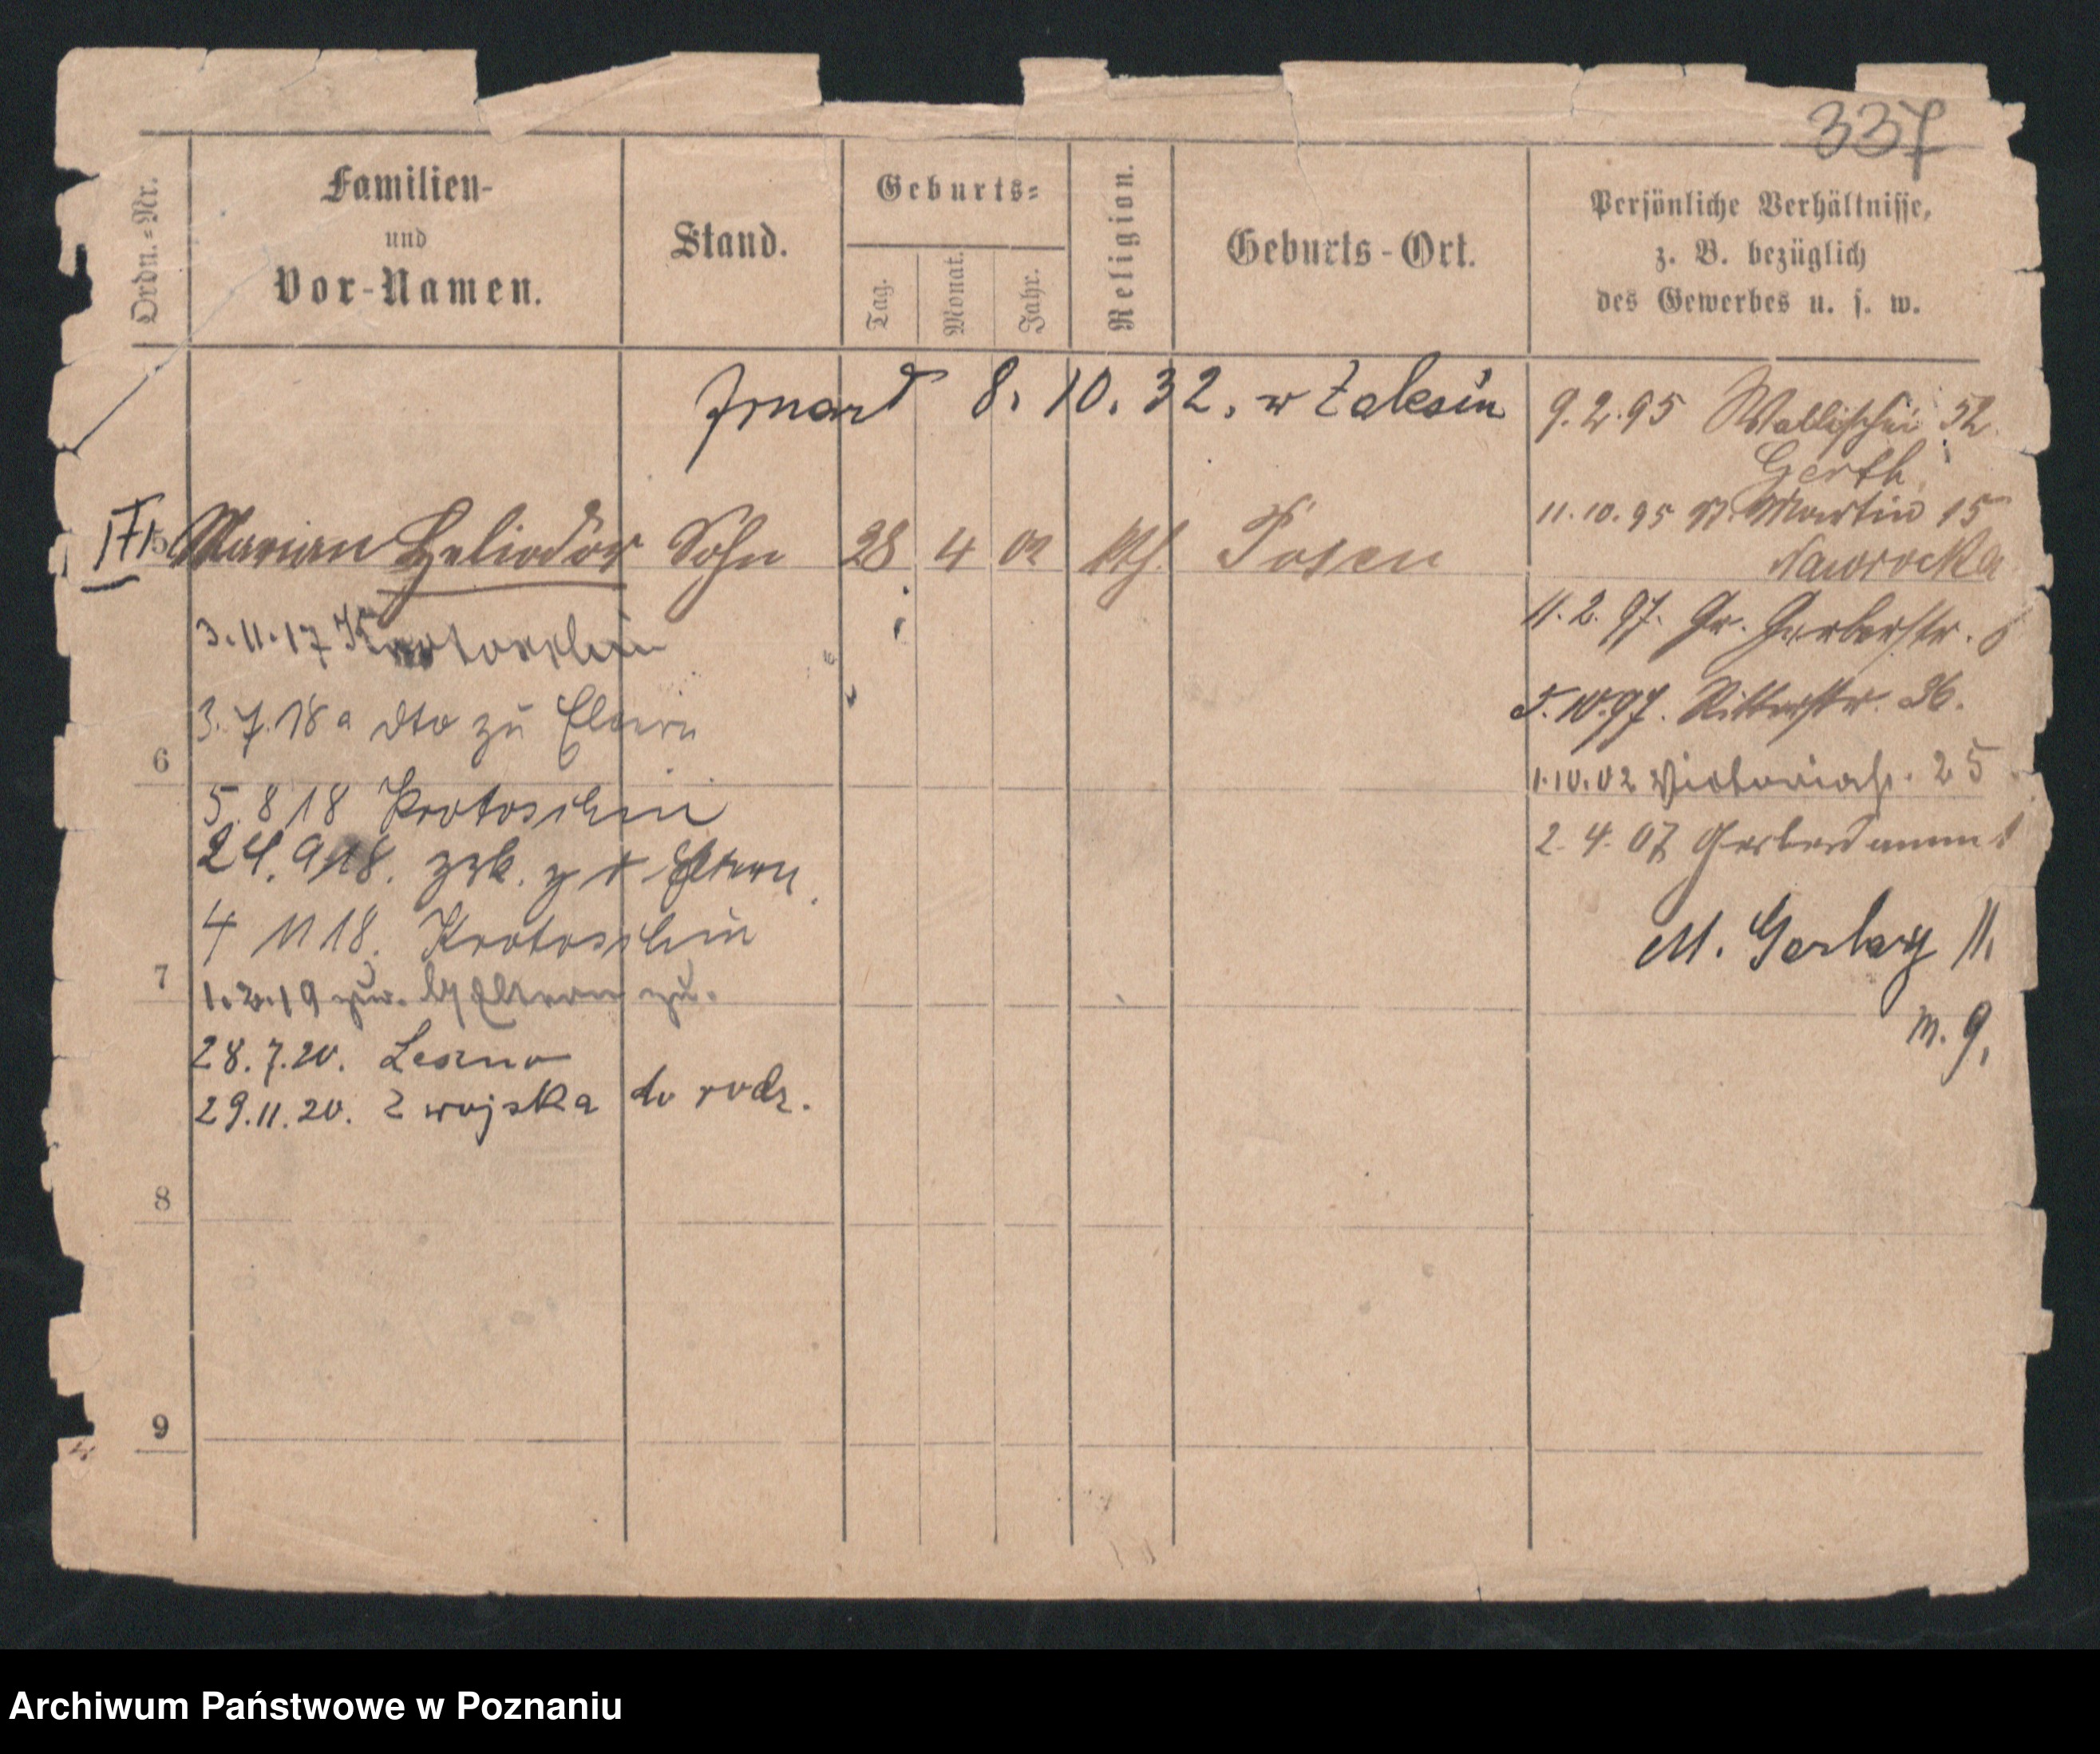 337
Ordn.-Nr.
Familien-
und
Vor-Namen.
Stand.
Geburts-
Tag.
Monat.
Jahr.
Religion.
Geburts-Ort.
Persönliche Verhältnisse,
z. B. bezüglich
des Gewerbes u. s. w.
8. 10. 32. w
9.2.95 Wallischei 52
Gerth
11.10.95 Martin 15
Nawrocka
Marian Heliodor Sohn 28 4 02 kth. Posen
11.2.97. Gr. Gerberstr.
3.11.17 Krotoschin
5.10.97. Ritterstr. 36.
3.7.18 a dto zu Eltern
6
1.10.02 Victoriastr. 25
5.8 18 Krotoschin
2.4.07 Gerberdamm 1
24.9.18. zrk. Eltern
4 11 18. Krotoschin
M. Garbary 11.
7
1.2.19 Eltern zu.
m. 9.
28.7.20. Leszno
29.11.20. z wojska do rodz.
8
9
Archiwum Państwowe w Poznaniu